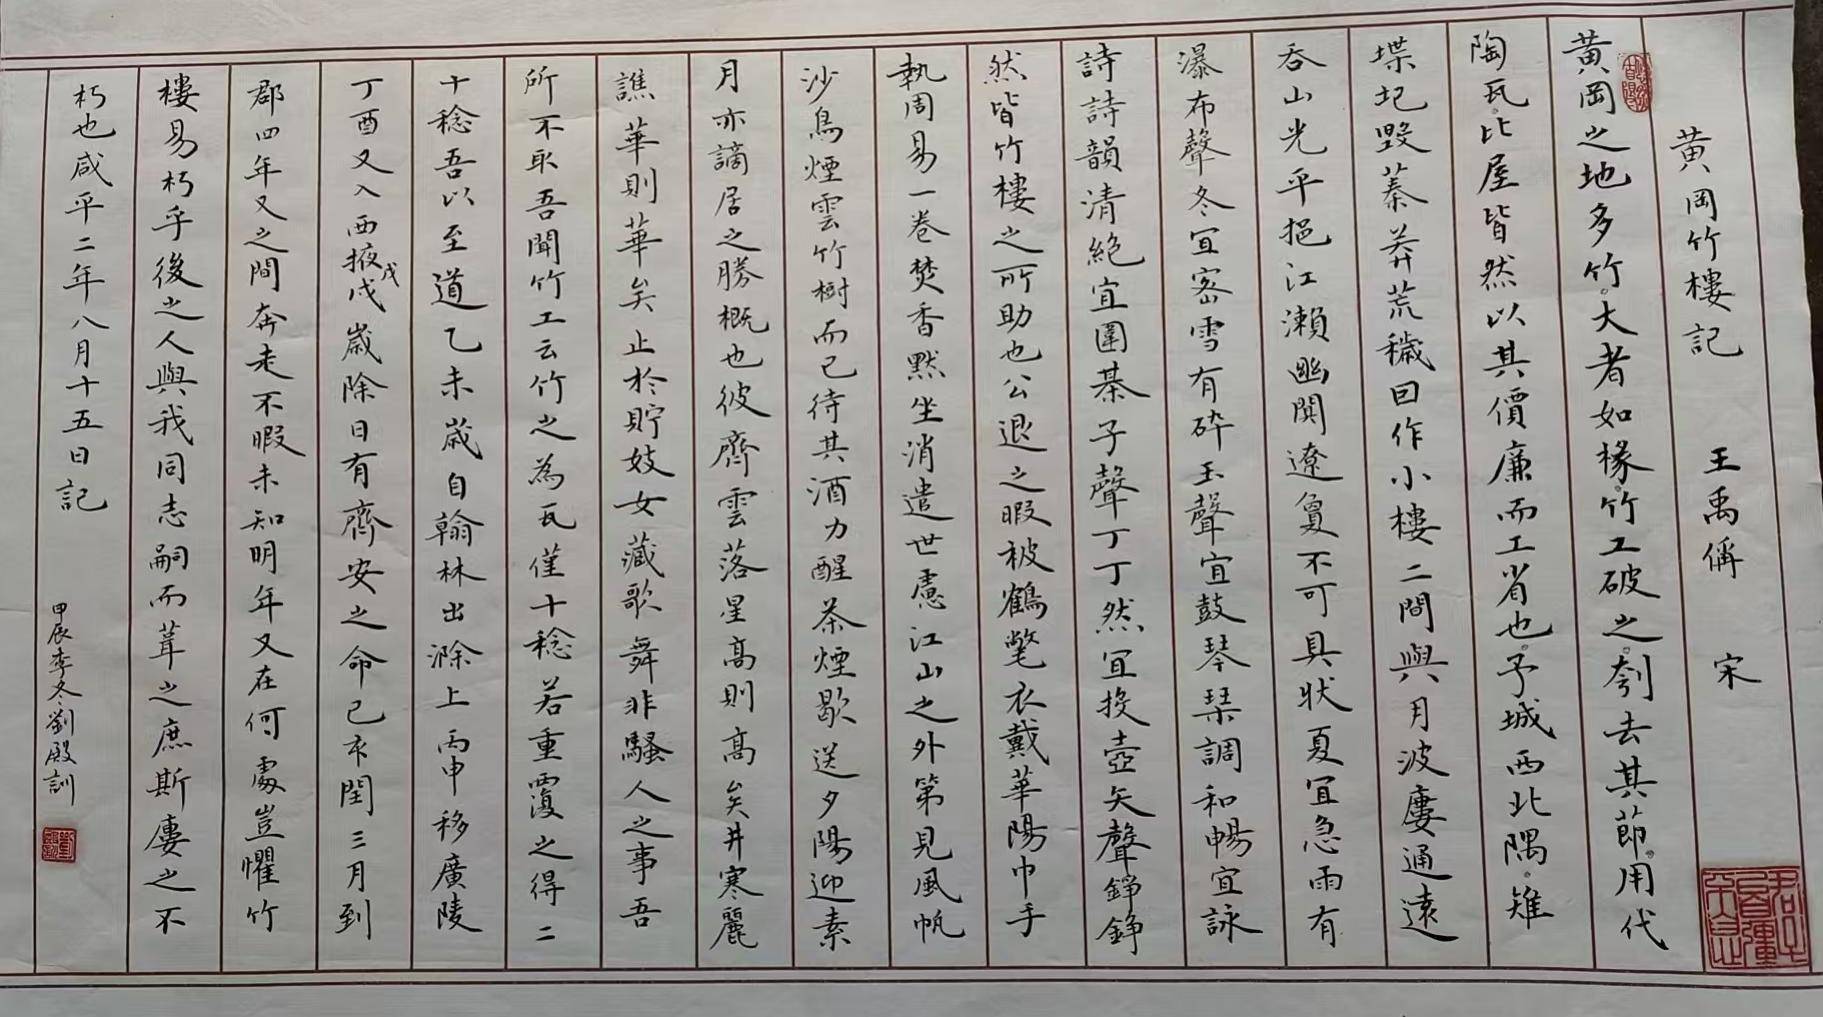 黄岡竹樓記 王禹偁 宋
黄岡之地多竹。大者如椽。竹工破之。刳去其節。用代
陶瓦。比屋皆然以其價廉而工省也。予城西北隅。雉
堞圮毀蓁莽荒穢曰作小樓二間與月波廔通遠
吞山光平挹江瀨幽闃遼敻不可具狀夏宜急雨有
瀑布聲冬宜宻雪有碎玉聲宜鼓琴琹調和暢宜詠
詩詩韻清絶宜圍棊子聲丁丁然宜投壺矢聲錚錚
然皆竹樓之所助也公退之暇被鶴氅衣戴華陽巾手
執周易一卷焚香默坐消遣世慮江山之外第見風帆
沙鳥煙雲竹樹而已待其酒力醒茶煙歇送夕陽迎素
月亦謫居之勝概也彼齊雲落星高則高矣井寒麗
譙華則華矣止於貯妓女藏歌舞非騷人之事吾
所不取吾聞竹工云竹之為瓦僅十稔若重覆之得二
十稔吾以至道乙未歲自翰林出滁上丙申移廣陵
丁酉又入西掖戊戌歲除日有齊安之命己亥閏三月到
郡四年又之間奔走不暇未知明年又在何處豈懼竹
樓易朽乎後之人與我同志嗣而葺之庶斯廔之不
朽也咸平二年八月十五日記
甲辰季冬劉殿訓